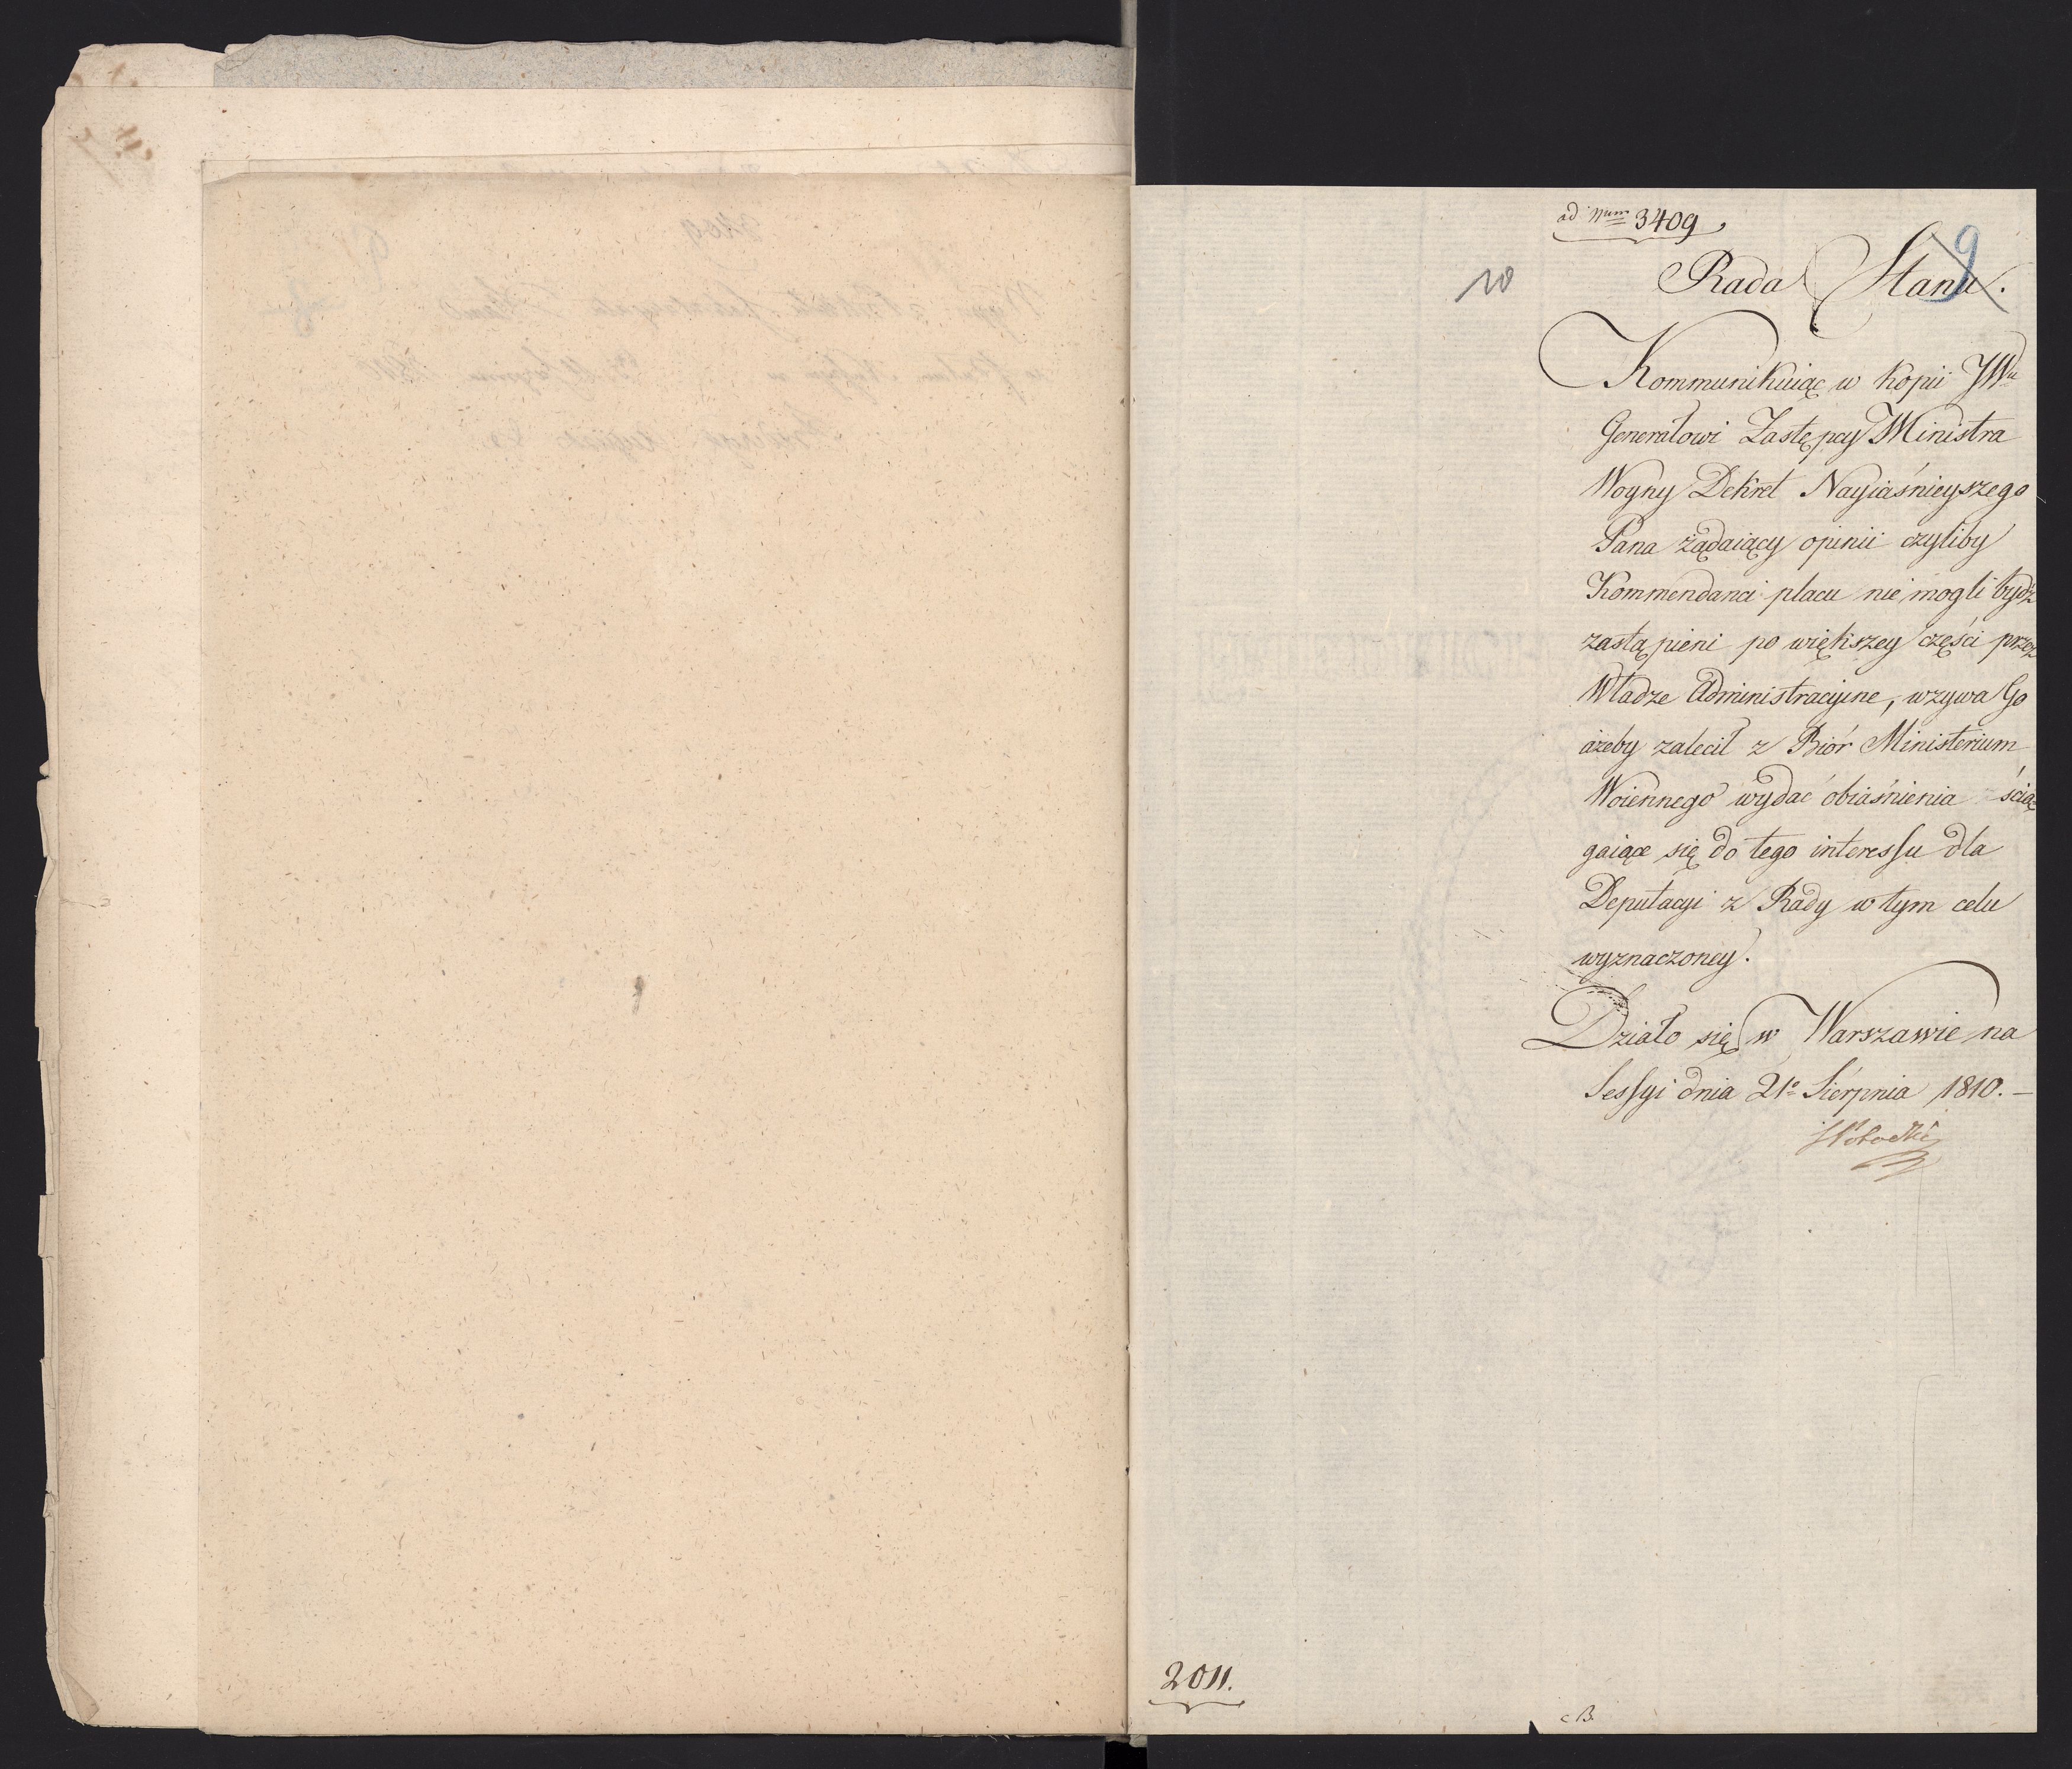 ad Num 3409
9
10
Rada Stanu.
Kommunikuiąc w kopii JWu
Generałowi Zastępcy Ministra
Woyny Dekret Nayiaśnieyszego
Pana żądaiący opinii czyliby
Kommendanci placu nie mogli bydź
zastąpieni po większey części przez
Władze Administracyine, wzywa Go
ażeby zalecił z Biór Ministerium
Woiennego wydać obiaśnienia ścią
gaiące się do tego interessu dla
Deputacyi z Rady w tym celu
wyznaczoney.
Działo się w Warszawie na
Sessyi dnia 21o Sierpnia 1810. –
2011.
B.